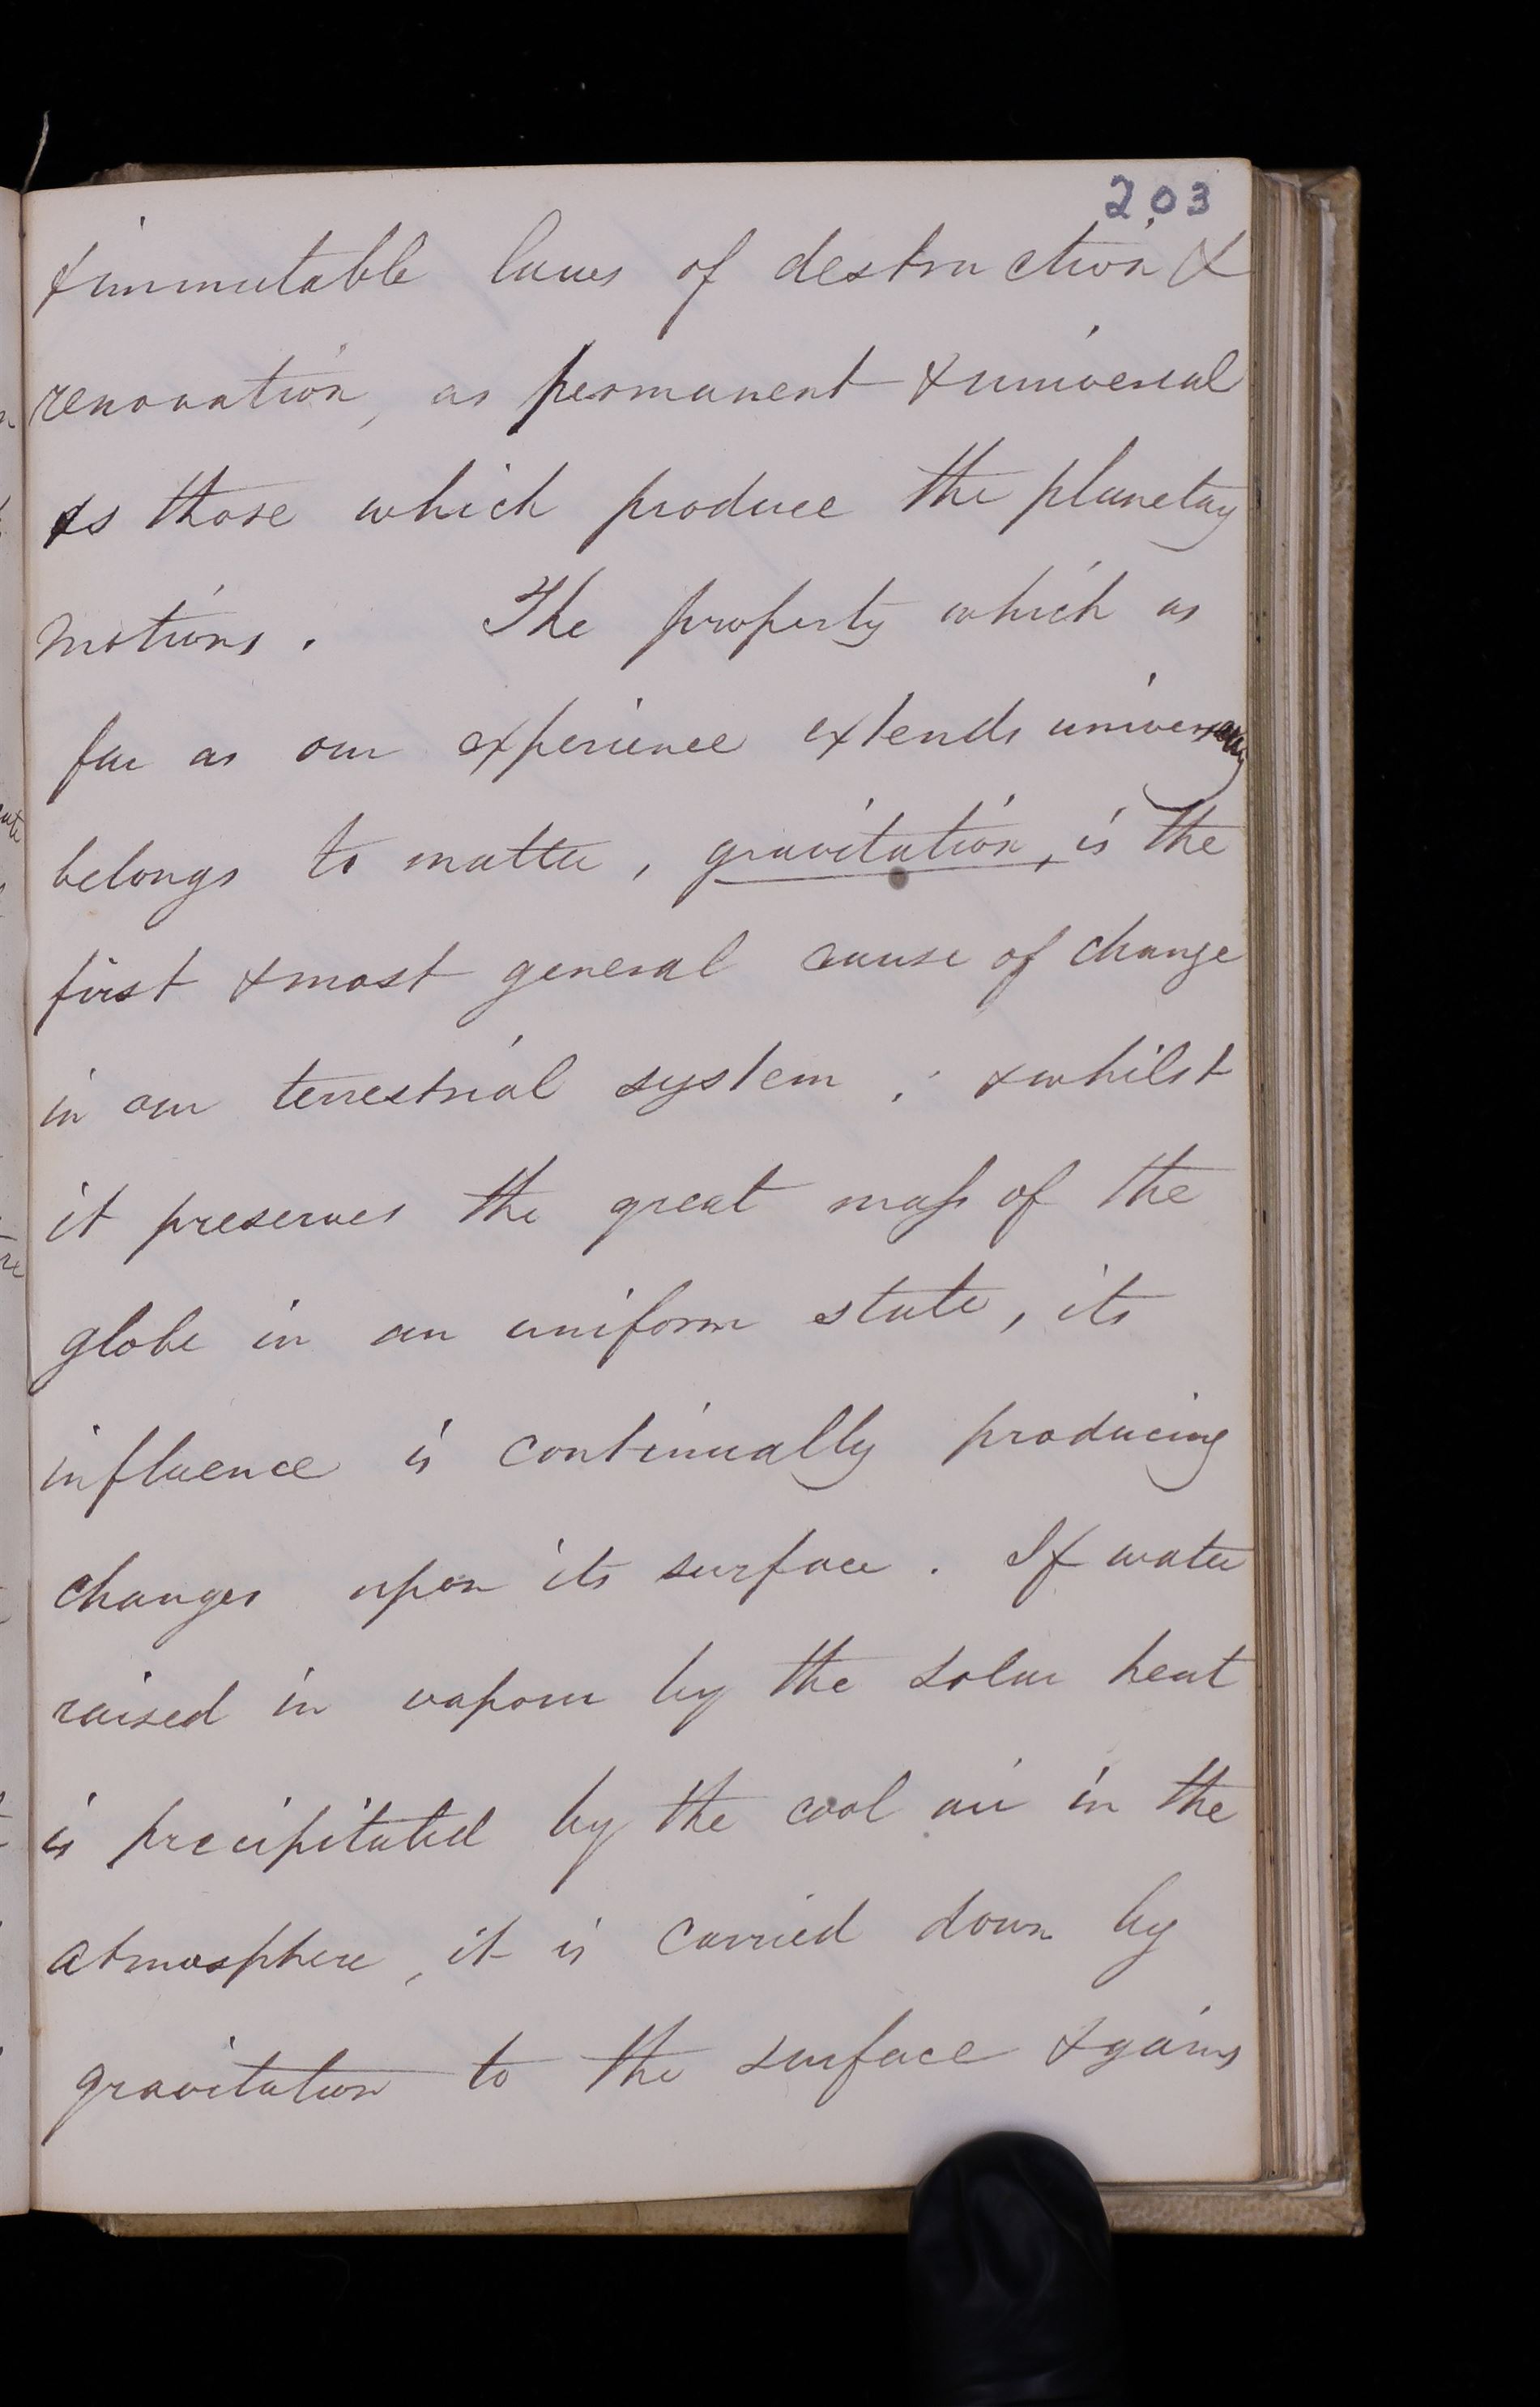 203
& immutable laws of destruction &
renovation, as permanent & universal
as those which produce the planetary
motions. The property which as
far as our experience extends universally
belongs to matter, gravitation, is the
first & most general cause of change
in our terrestrial system ; & whilst
it preserves the great mass of the
globe in an uniform state, its
influence is continually producing
changes upon its surface. If water
raised in vapour by the solar heat
is precipitated by the cool air in the
atmosphere, it is carried down by
gravitation to the surface & gains